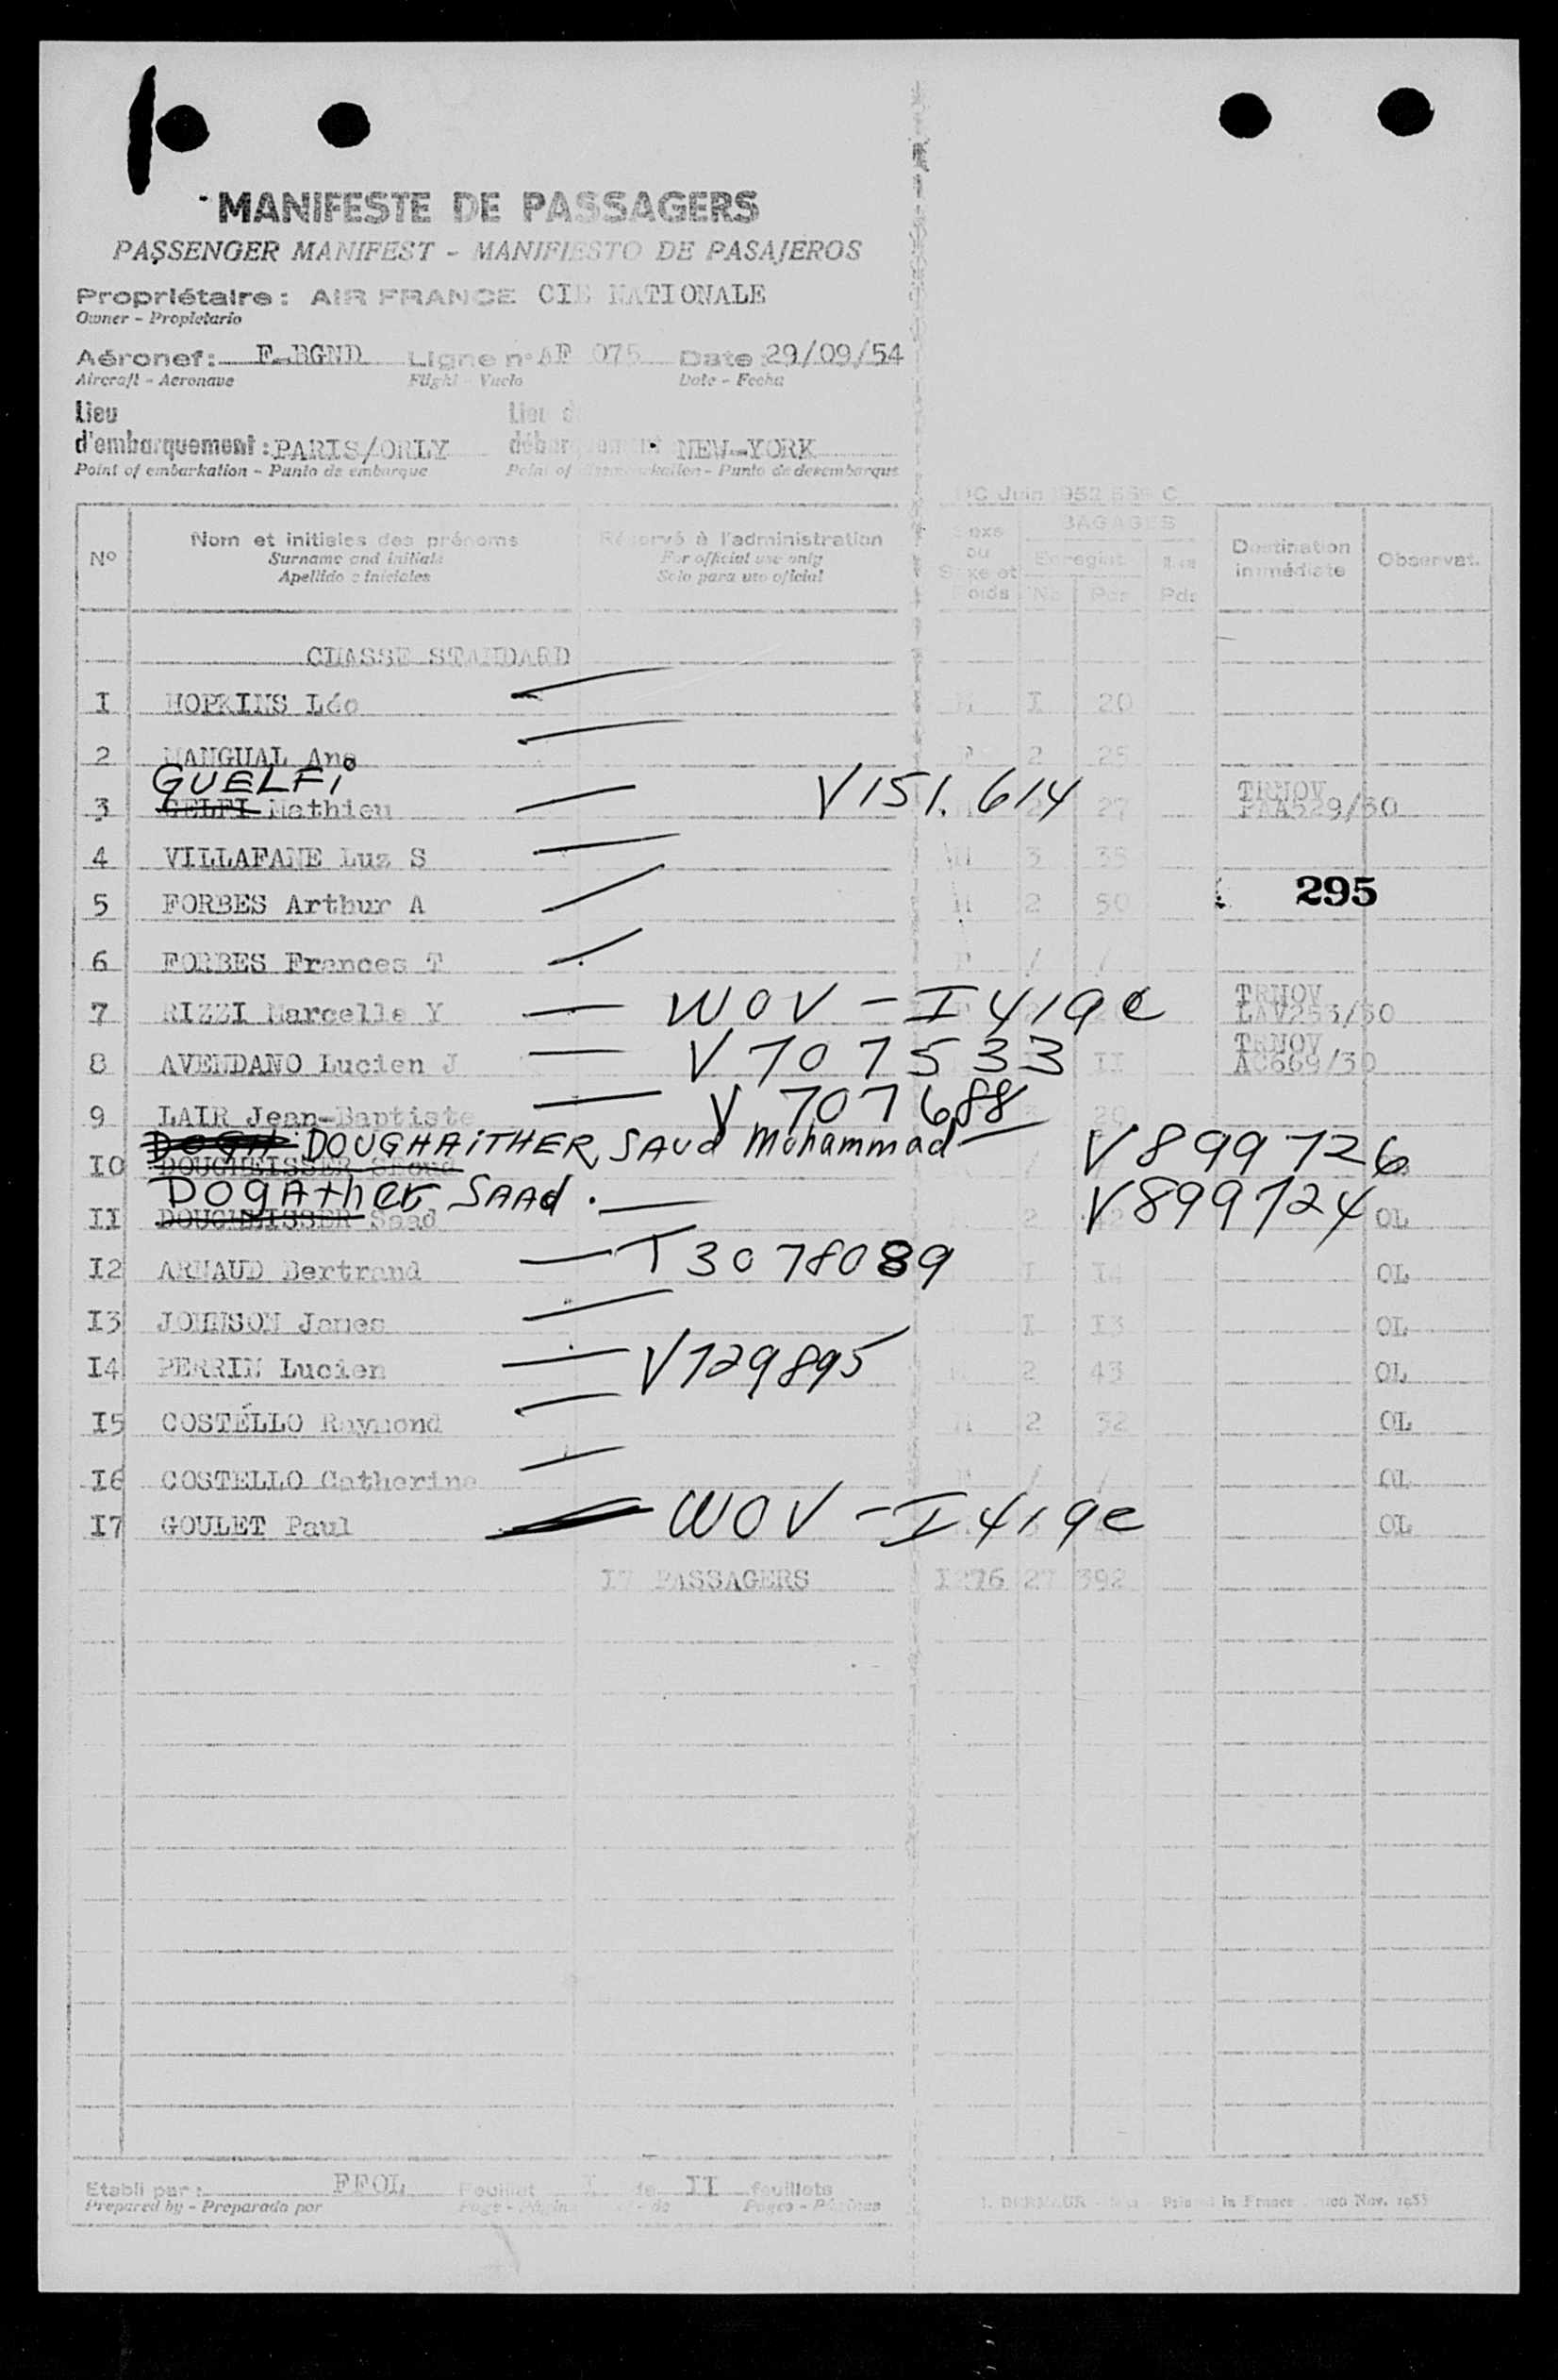 MANIFESTE DE PASSAGERS
PASSENGER MANIFEST - MANIFIESTO DE PASAJEROS
Propriétaire : AIR FRANCE CIE NATIONALE
Owner - Propietario
Aéronef : F-BGND Ligne n° AF 075 Date 29/09/54
Aircraft - Aeronave Flight - Vuelo Date - Fecha
Lieu Lieu d
d'embarquement : PARIS/ORLY NEW-YORK
Point of embarkation - Punto de embarque Point of - Punto de desembarque
Juin 1952
N° Nom et initiales des prénoms Réservé à l'administration BAGAGES Destination immédiate Observat.
Surname and initials For official use only
Apellido e iniciales Solo para uso oficial
CLASSE STANDARD
I HOPKINS Léo I 20
2 MANGUAL Ana 2 25
GUELFI
3 GELFI Mathieu V151.614 2 27 TRNOV PAA329/30
4 VILLAFANE Luz S 3 35
5 FORBES Arthur A 2 50
295
6 FORBES Frances T / /
7 RIZZI Marcelle Y WOV - I 419e TRNOV LAV253/30
8 AVENDANO Lucien J V 707533 II TRNOV AC669/30
9 LAIR Jean-Baptiste V 707688 20
DOGH DOUGHAITHER, SAUd Mohammad V899726
IO DOUGHEISSER
DOgAther SAAd. V899724
II DOUGHEISSER Saad 2 OL
I2 ARNAUD Bertrand T3078089 I I4 OL
I3 JOHNSON James I I3 OL
I4 PERRIN Lucien V729895 2 43 OL
I5 COSTELLO Raymond 2 32 OL
I6 COSTELLO Catherine / / OL
I7 GOULET Paul WOV - I 419e OL
I7 PASSAGERS I276 27 392
Etabli par : FFOL Feuillet I de II feuillets
Prepared by - Preparado por Page - Página de Pages - Páginas
in France